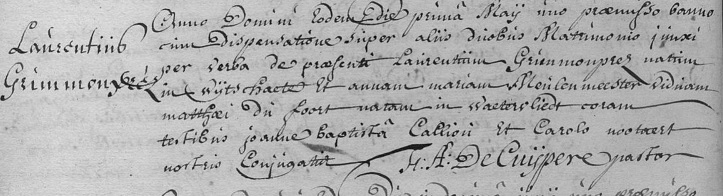 Anno Domini Eodem Die primâ Maij uno præmisso banno
Laurentius
cum Dispensatione super aliis duobus Matrimonio junxi
Grimmonprez
per verba de præsenti Laurentium Grimmonprez natum
in wijtschaete Et annam mariam Meulenmeester viduam
matthæi Du foort natam in waetervliedt coram
testibus joanne baptistâ Callion Et Carolo nootaert
nostris Conjugatis H: A: De Cuijpere pastor